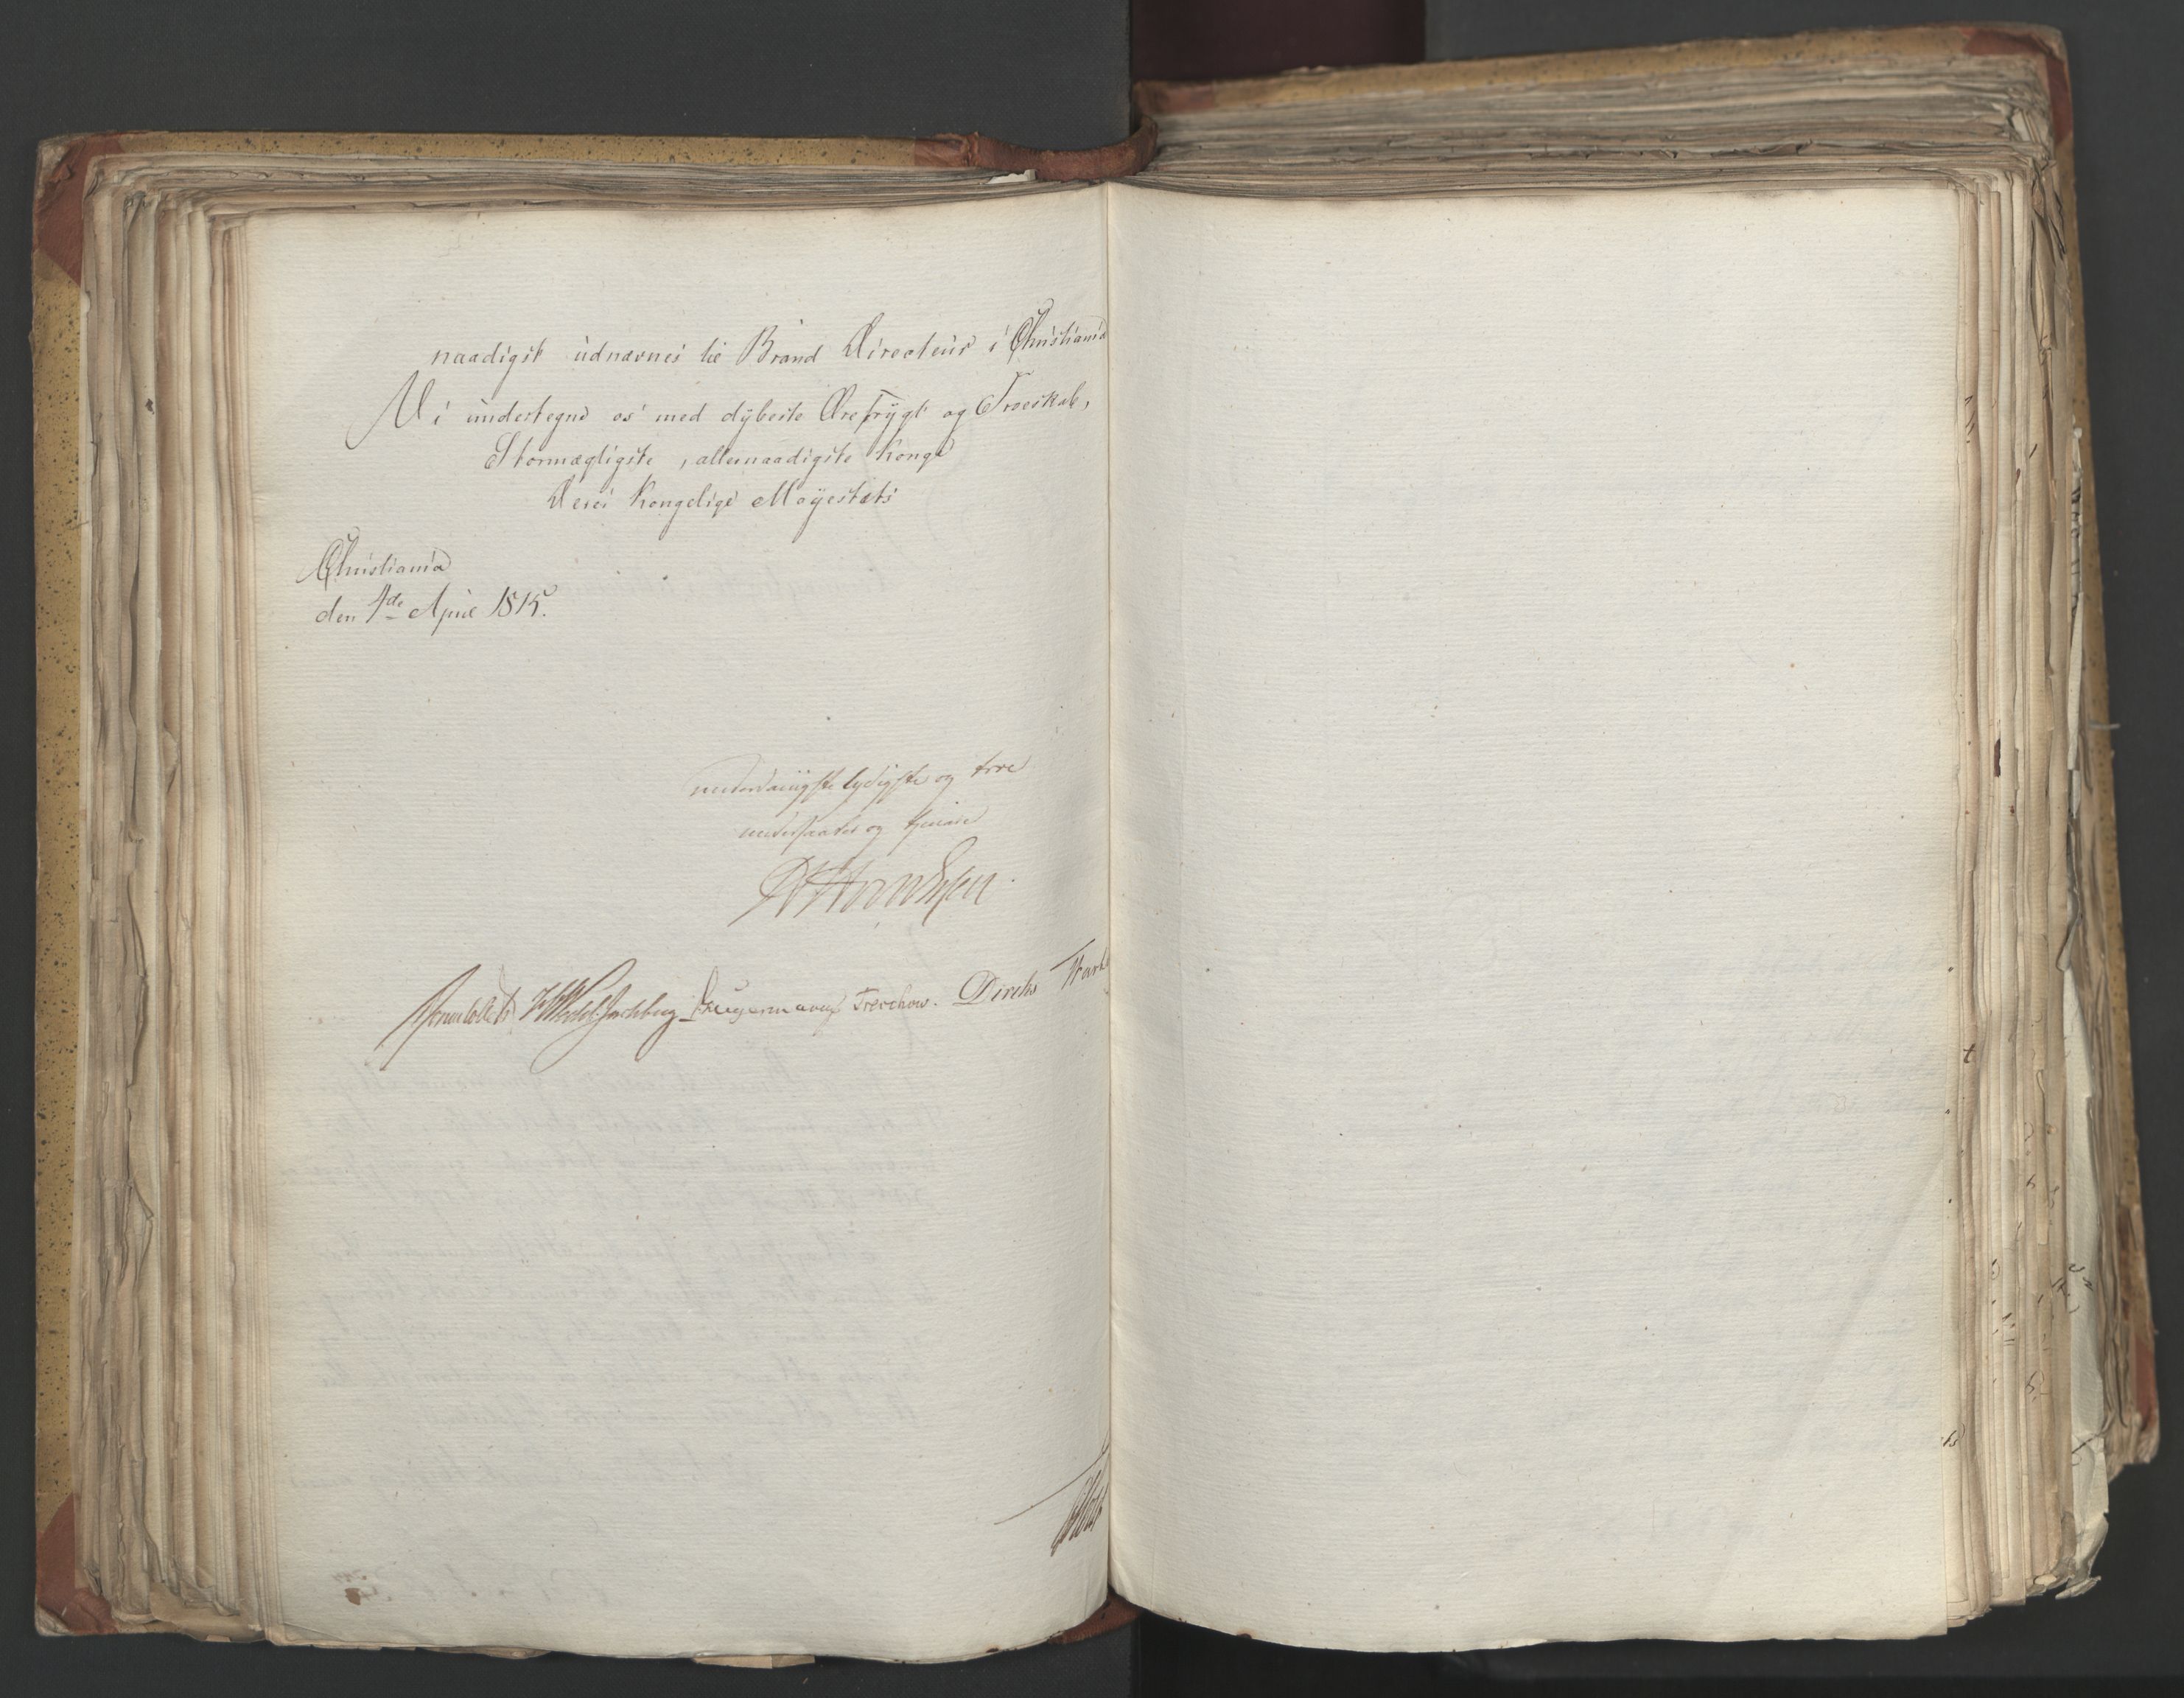 naadigst udnævnes til Brand Directeur i Christiania
Vi undertegne os med dybeste Ærefrygt og Troeskab,
Stormægtigste, allernaadigste Konge
Deres Kongelige Mayestæts
Christiania
den 4de April 1815.
underdanigste lydigste og troe
undersaatter og tjenere
Jonas Collett HWedel Jarlsberg Krugermann Treschow. Diriks